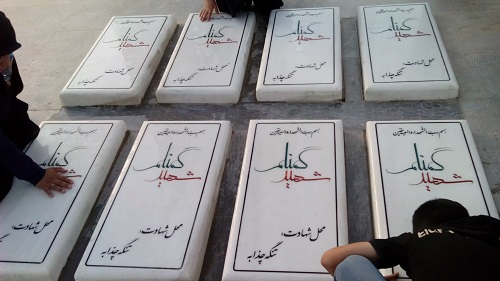 بسم رب الشهداء والصدیقین
شهید گمنام
محل شهادت:
تنگه چذابه
بسم رب الشهداء والصدیقین
شهید گمنام
محل شهادت:
تنگه چذابه
شهید گمنام
محل شهادت:
تنگه چذابه
بسم رب الشهداء والصدیقین
شهید گمنام
محل شهادت:
تنگه چذابه
بسم رب الشهداء والصدیقین
شهید گمنام
بسم رب الشهداء والصدیقین
شهید گمنام
محل شهادت:
تنگه چذابه
بسم رب الشهداء والصدیقین
شهید گمنام
محل شهادت:
تنگه چذابه
بسم رب الشهداء والصدیقین
شهید گمنام